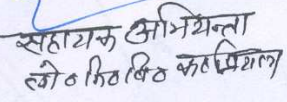 सहायक अभियन्ता
लो० नि० वि० कपकोट